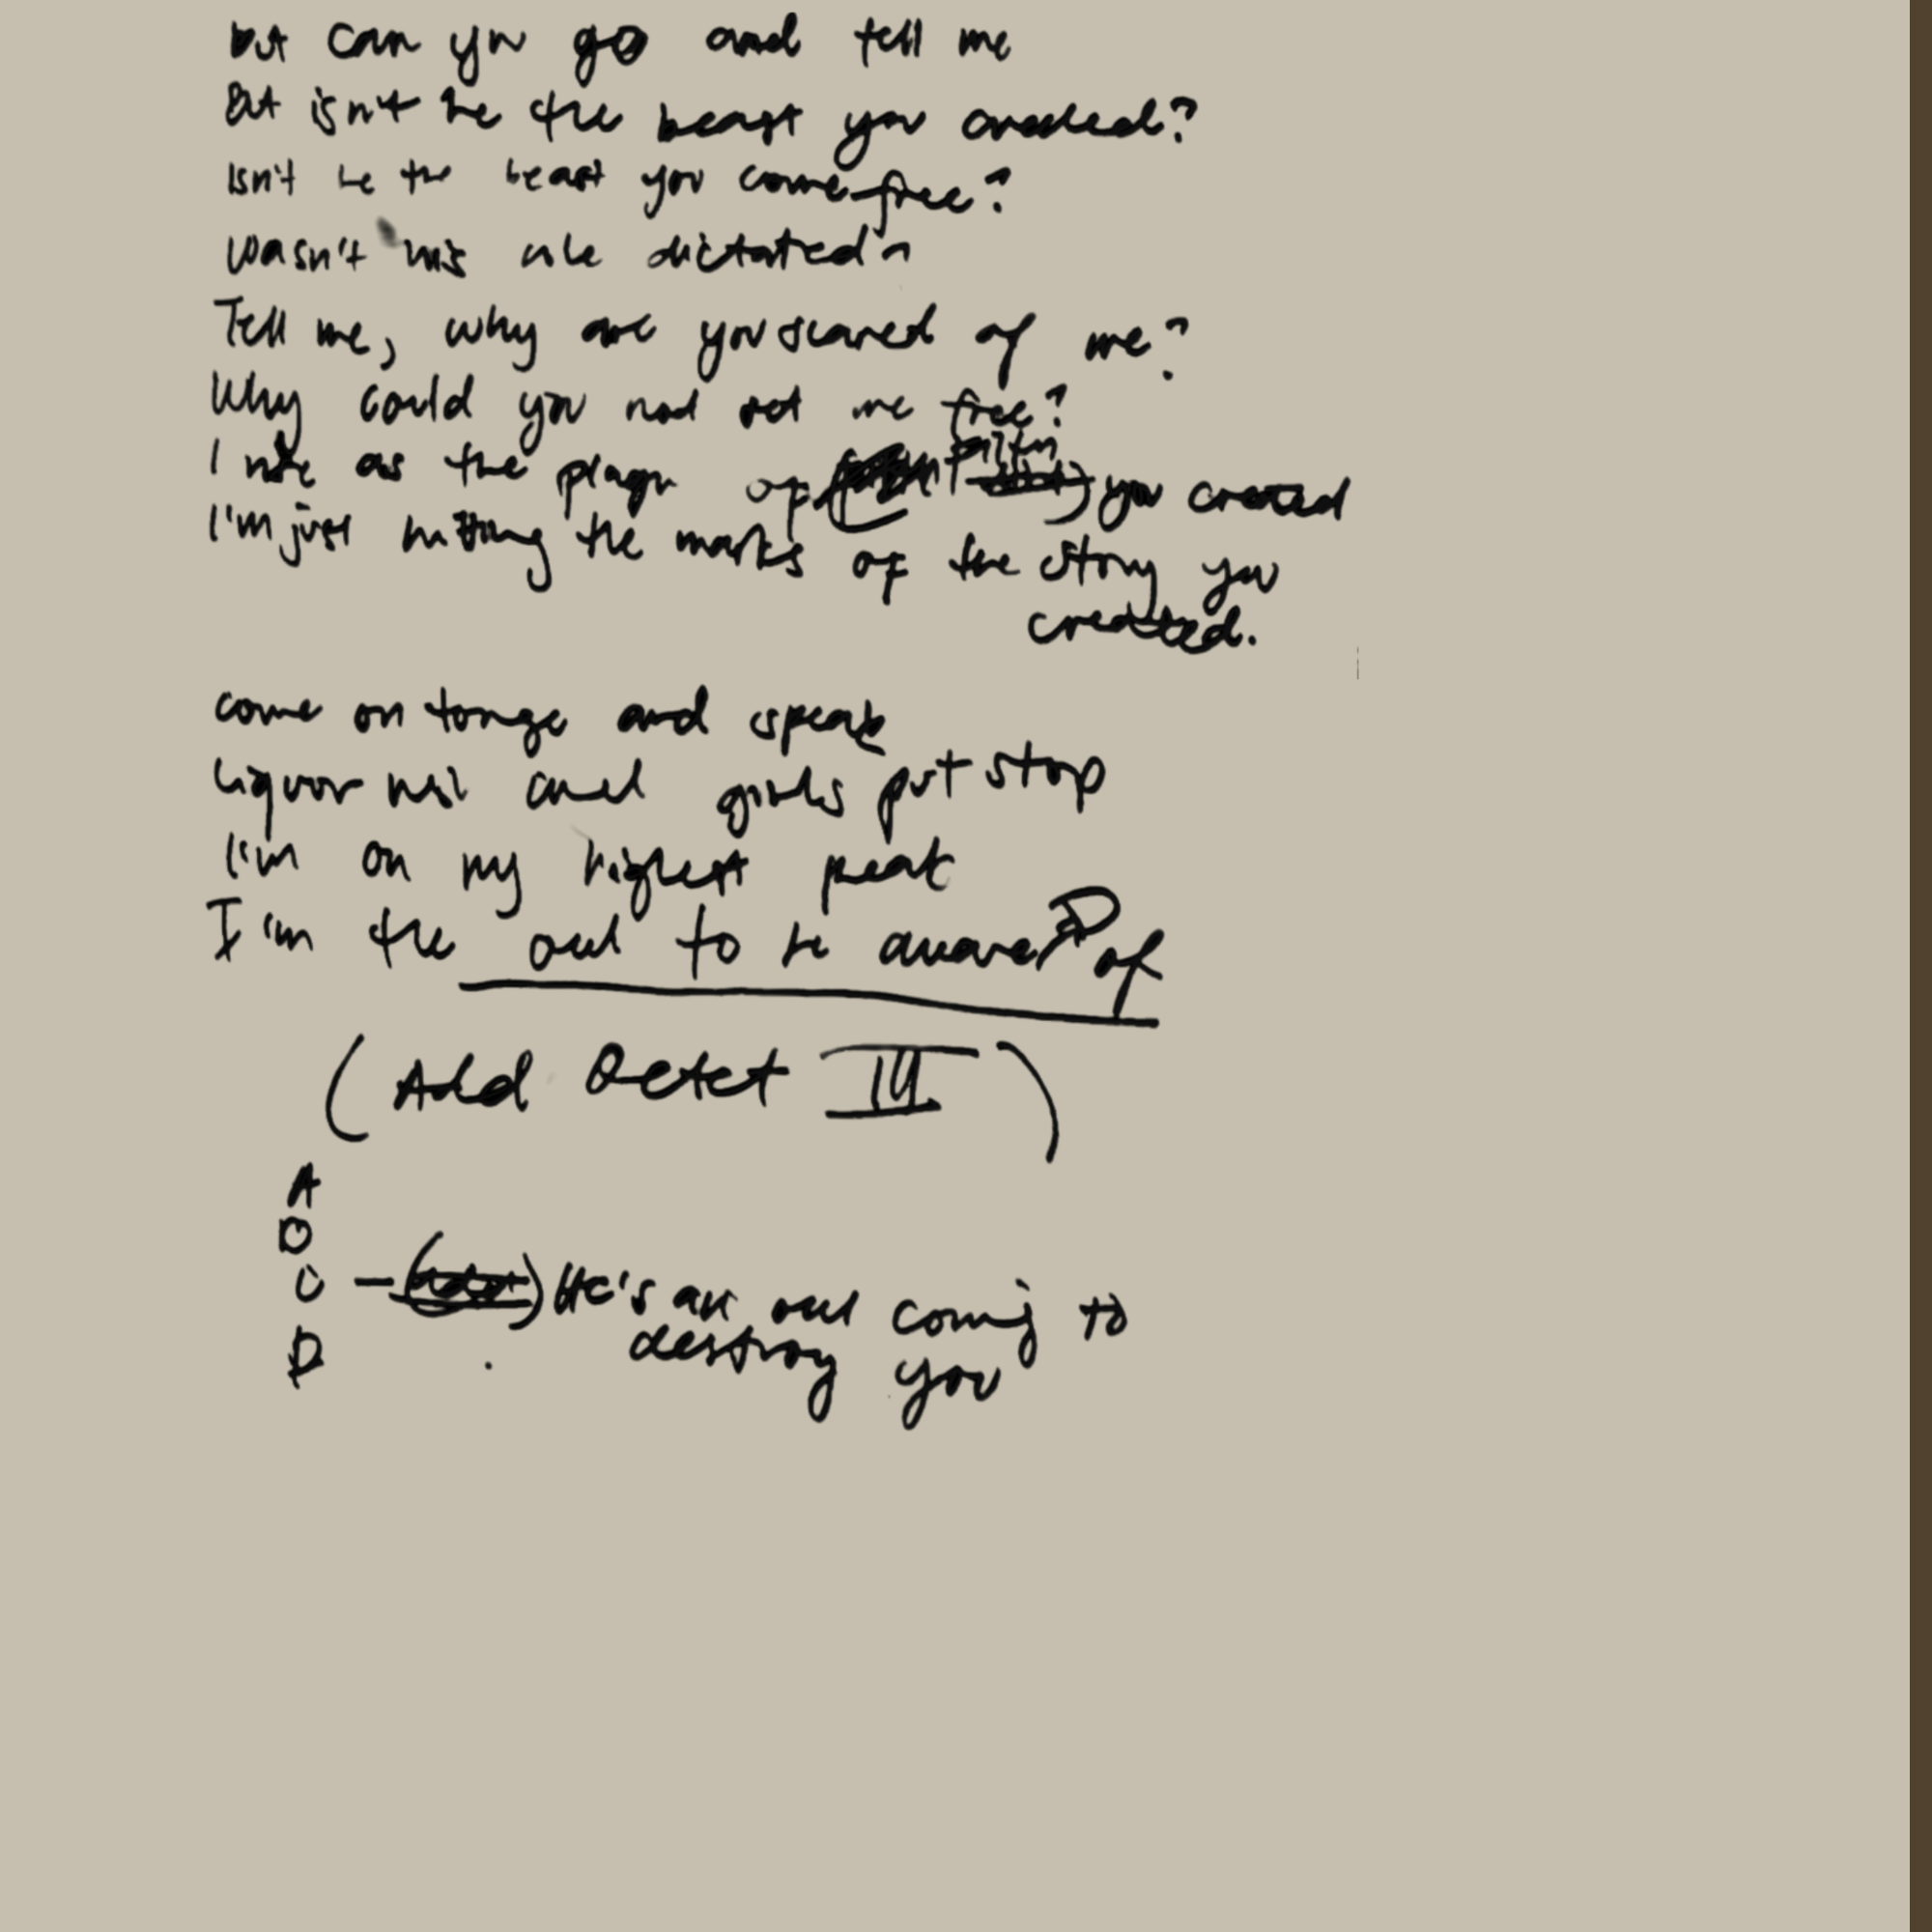 but can you go and tell me
But isn't he the beast you created?
Isn't he the beast you come free?
Wasn't his dictated
Tell me, why are you scared of me?
Why could you not set me free?
I as the of you created
I'm just hitting the marks of the story you
created.
come on tonge and speak
Liquor and girls put stop
I'm on my highest peak
I'm the owl to be aware of
(Add III)
A
D
D
He's an owl coming to
destroy you